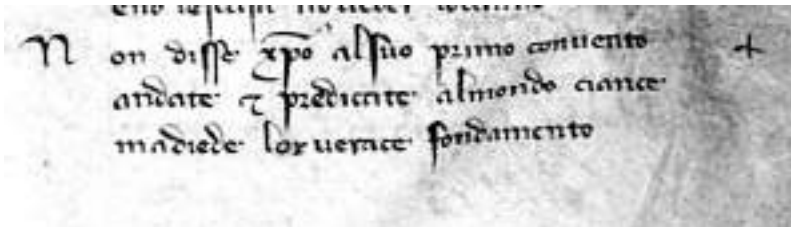 N on disse xpo alsuo primo conuento +
andate ⁊ predicate almondo ciance
madiede lor uerace fondamento